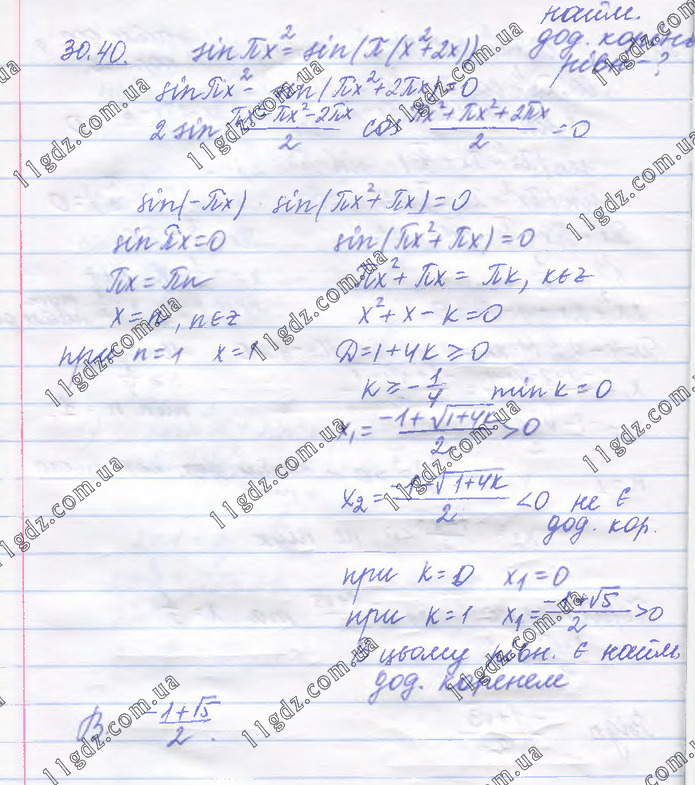 30.40. sin πx² = sin(π(x²+2x)) найм. дод. корень рівн-?
sin πx² - sin(πx²+2πx)=0
2 sin (πx²-πx²-2πx)/2 cos (πx²+πx²+2πx)/2 =0
sin(-πx) · sin(πx²+πx)=0
sin πx=0
sin(πx²+πx)=0
πx=πn
πx²+πx=πk, k∈z
x=n, n∈z
x²+x-k=0
при n=1 x=1
D=1+4k≥0
k≥-1/4 min k=0
x₁=(-1+√(1+4k))/2 >0
x₂=(-1-√(1+4k))/2 <0 не є
дод. кор.
при k=0 x₁=0
при k=1 x₁=(-1+√5)/2 >0
цьому є найм
дод. коренем
В. (-1+√5)/2.
11gdz.com.ua